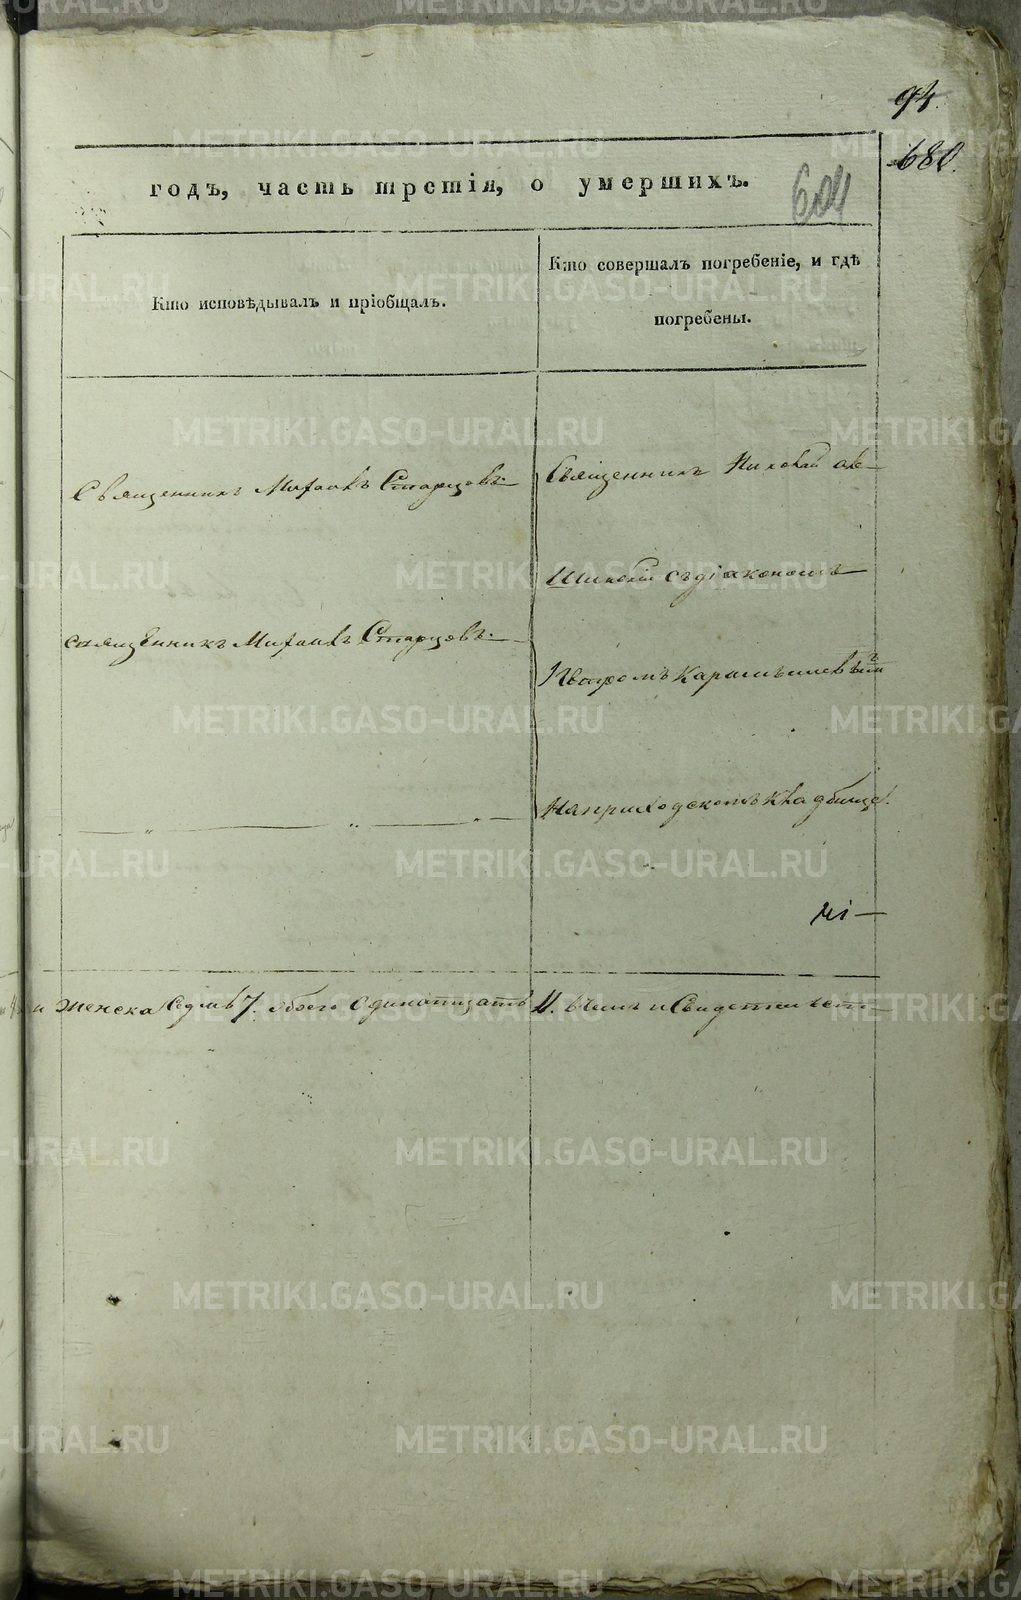 94
680.
годъ, часть третія, о умершихъ.
604
Кто исповѣдывалъ и пріобщалъ.
Кто совершалъ погребеніе, и гдѣ
погребены.
Священникъ Михаилъ Старцовъ.
Священникъ Николай
съ діакономъ
священникъ Михаилъ Старцовъ.
Петромъ
На приходскомъ кладбище.
и женска седмь 7. обоего одинатцать 11. въ чемъ и свидетельст-
METRIKI.GASO-URAL.RU